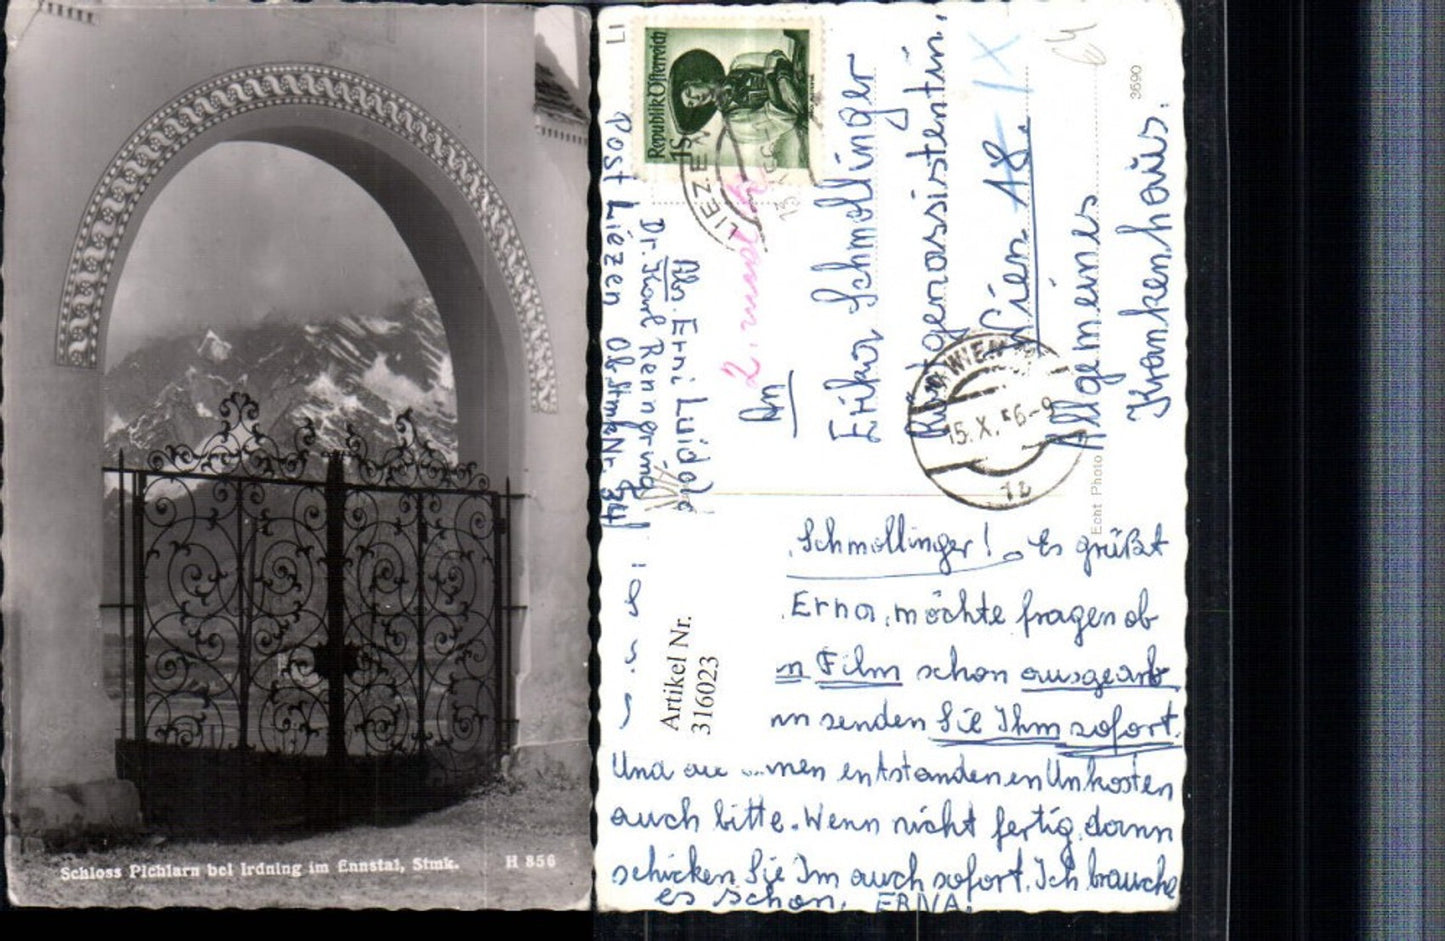 Schloss Pichlarn bei Irdning im Ennstal, Stmk. H 856
Republik Österreich
1S
LIEZEN
2. mal
An
Erika Schmollinger
Röntgenassistentin,
Wien 18. IX
Allgemeines
Krankenhaus.
64
3690
WIEN
15.X.56-9
1b
Echt Photo
Abs. Erni Luidold
Dr. Karl Rennerring
Post Liezen Ob. Stmk Nr. 34
Artikel Nr.
316023
Schmollinger! Es grüßt
Erna, möchte fragen ob
Film schon ausgearb
senden Sie Ihm sofort.
Und entstandenen Unkosten
auch bitte. Wenn nicht fertig, dann
schicken Sie Im auch sofort. Ich brauche
es schon. ERNA.